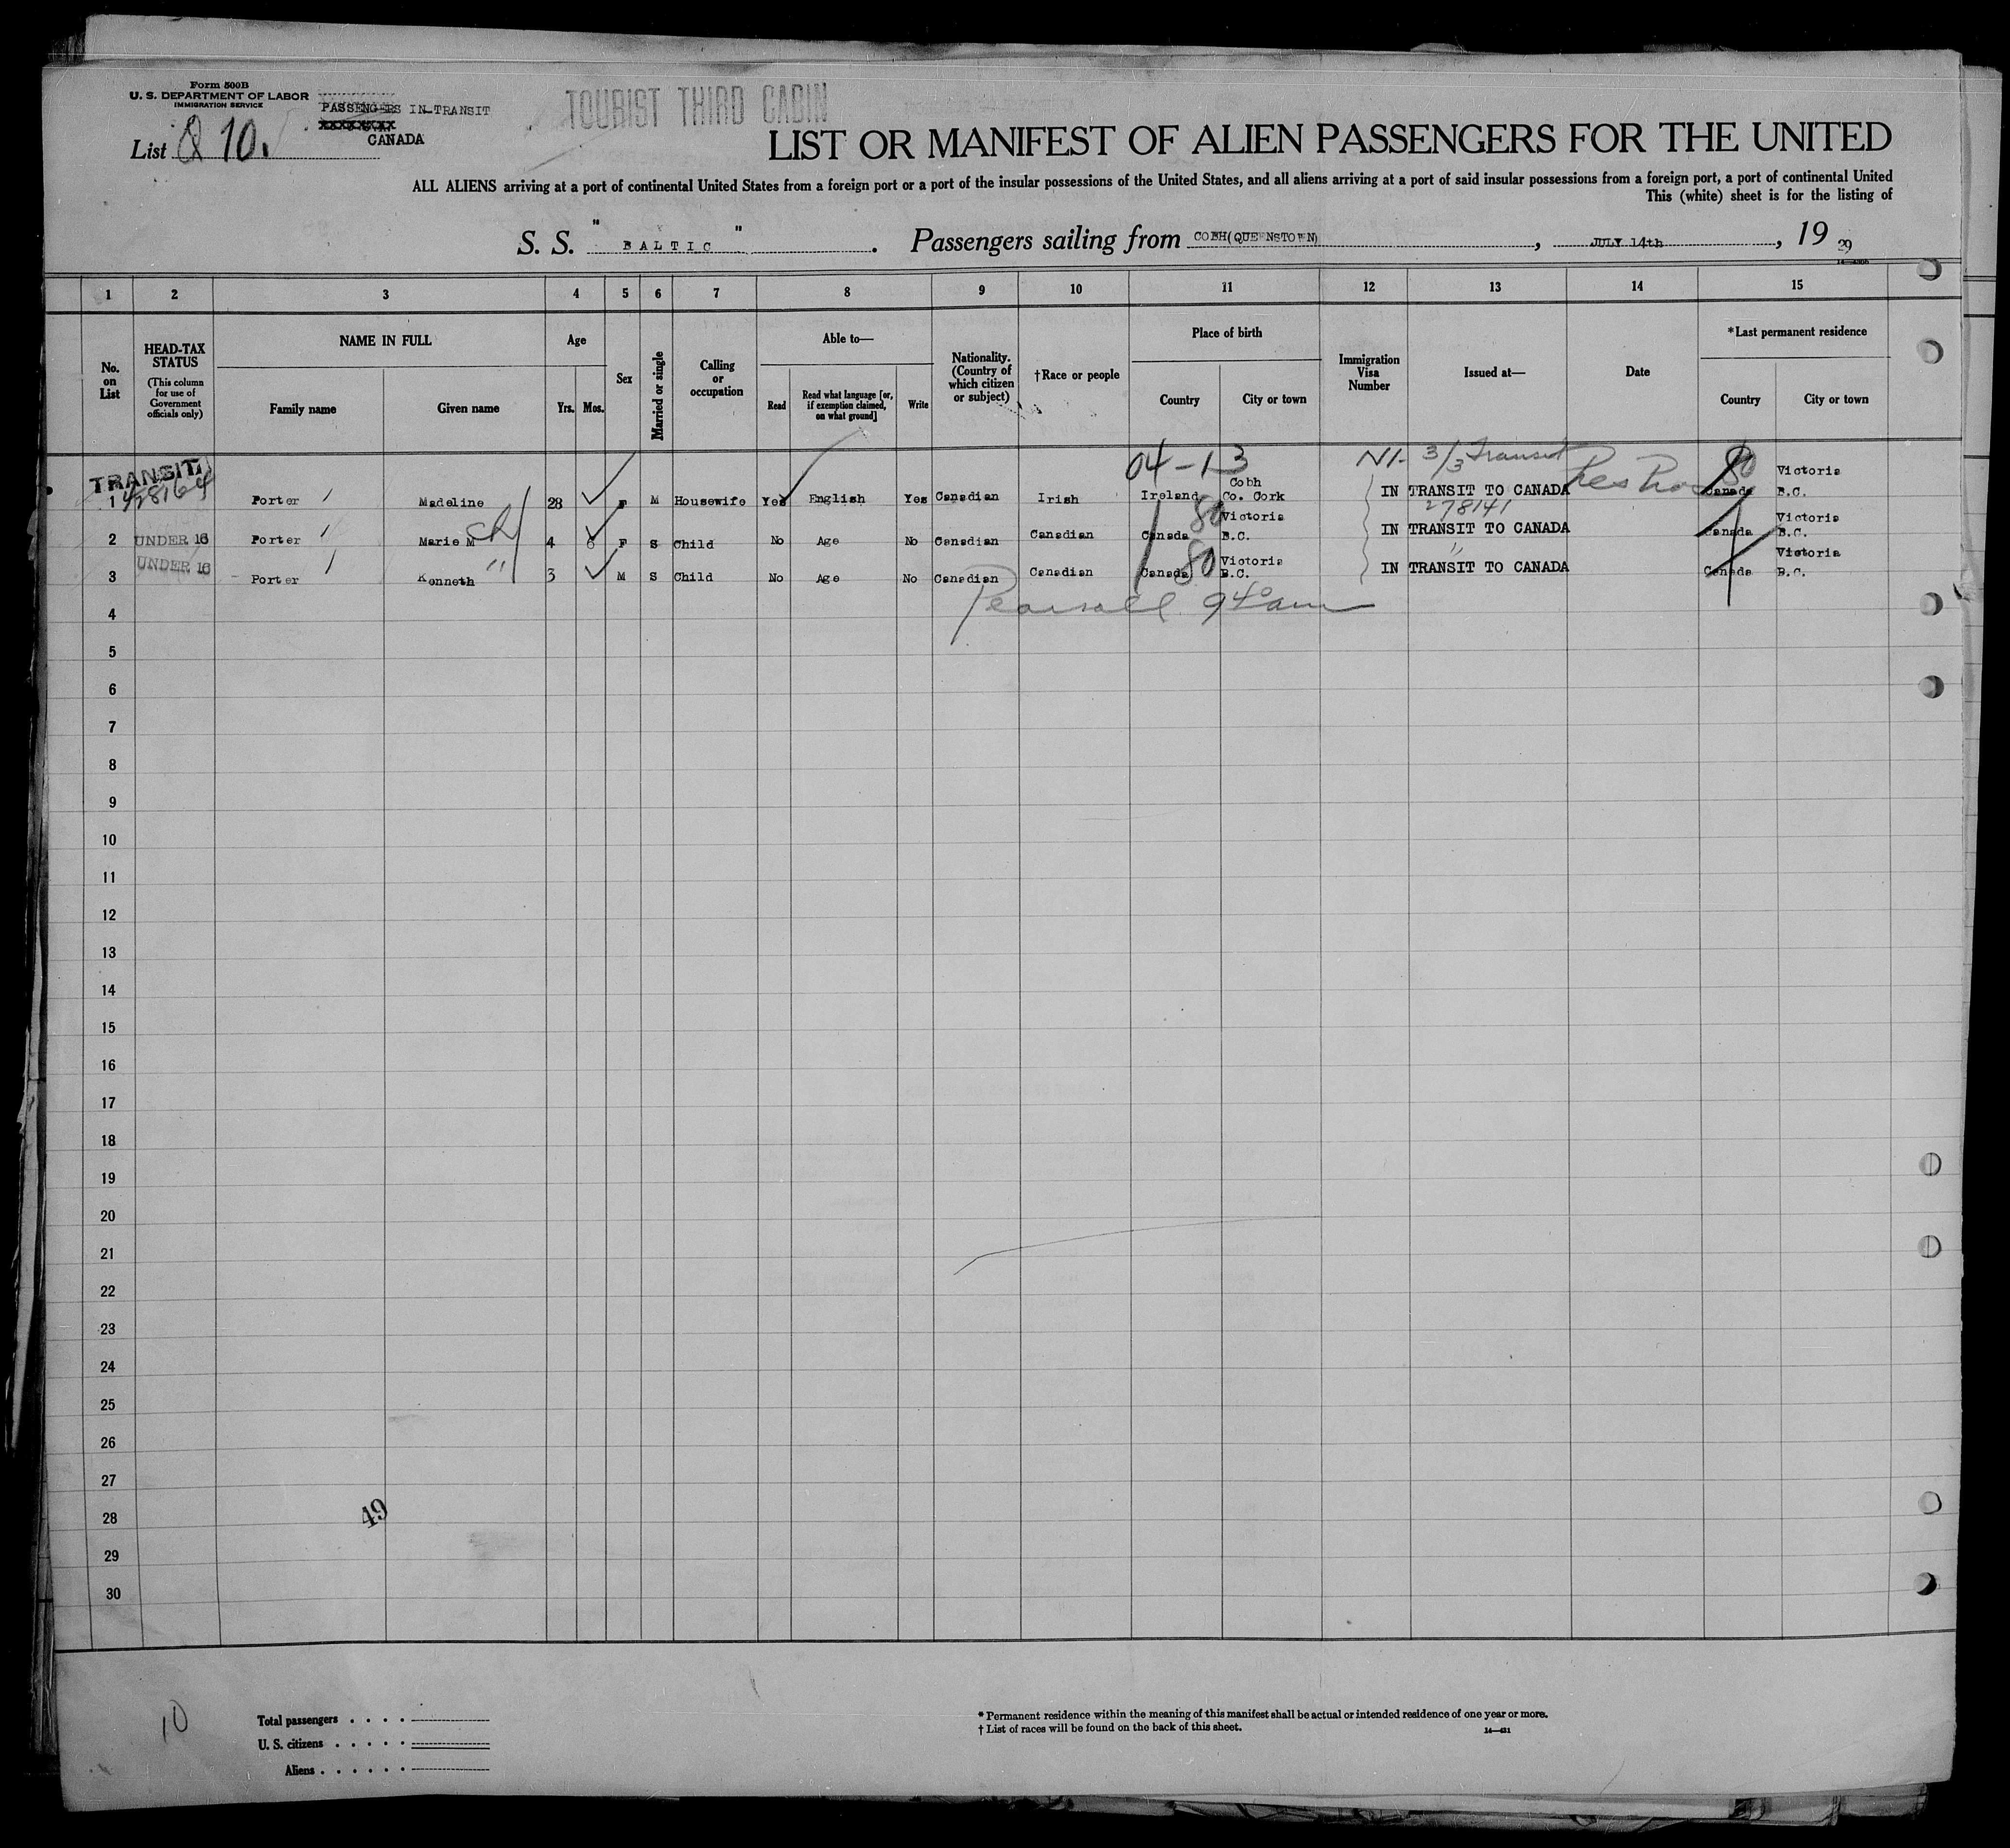 Form 500B
U. S. DEPARTMENT OF LABOR
IMMIGRATION SERVICE
PASSENGERS IN TRANSIT
CANADA
TOURIST THIRD CABIN
List Q 10.
LIST OR MANIFEST OF ALIEN PASSENGERS FOR THE UNITED
ALL ALIENS arriving at a port of continental United States from a foreign port or a port of the insular possessions of the United States, and all aliens arriving at a port of said insular possessions from a foreign port, a port of continental United
This (white) sheet is for the listing of
S. S. "BALTIC". Passengers sailing from COBH(QUEENSTOWN), JULY 14th, 19 29
1 2 3 4 5 6 7 8 9 10 11 12 13 14 15
No. on List
HEAD-TAX STATUS (This column for use of Government officials only)
NAME IN FULL
Family name Given name
Age
Yrs. Mos.
Sex
Married or single
Calling or occupation
Able to—
Read
Read what language [or, if exemption claimed, on what ground]
Write
Nationality. (Country of which citizen or subject)
†Race or people
Place of birth
Country City or town
Immigration Visa Number
Issued at—
Date
*Last permanent residence
Country City or town
04-13 3/3 Transit 80
TRANSIT
1 Porter Madeline 28 F M Housewife Yes English Yes Canadian Irish Ireland Cobh Co. Cork IN TRANSIT TO CANADA Canada Victoria B.C.
278141
2 UNDER 16 Porter Marie M ch 4 6 F S Child No Age No Canadian Canadian Canada 80 Victoria B.C. IN TRANSIT TO CANADA Canada Victoria B.C.
3 UNDER 16 Porter Kenneth " 3 M S Child No Age No Canadian Canadian Canada 80 Victoria B.C. IN TRANSIT TO CANADA Canada Victoria B.C.
Pearsall 9 40 am
4
5
6
7
8
9
10
11
12
13
14
15
16
17
18
19
20
21
22
23
24
25
26
27
28
49
29
30
10
Total passengers . . . .
U. S. citizens . . . . .
Aliens . . . . . .
* Permanent residence within the meaning of this manifest shall be actual or intended residence of one year or more.
† List of races will be found on the back of this sheet.